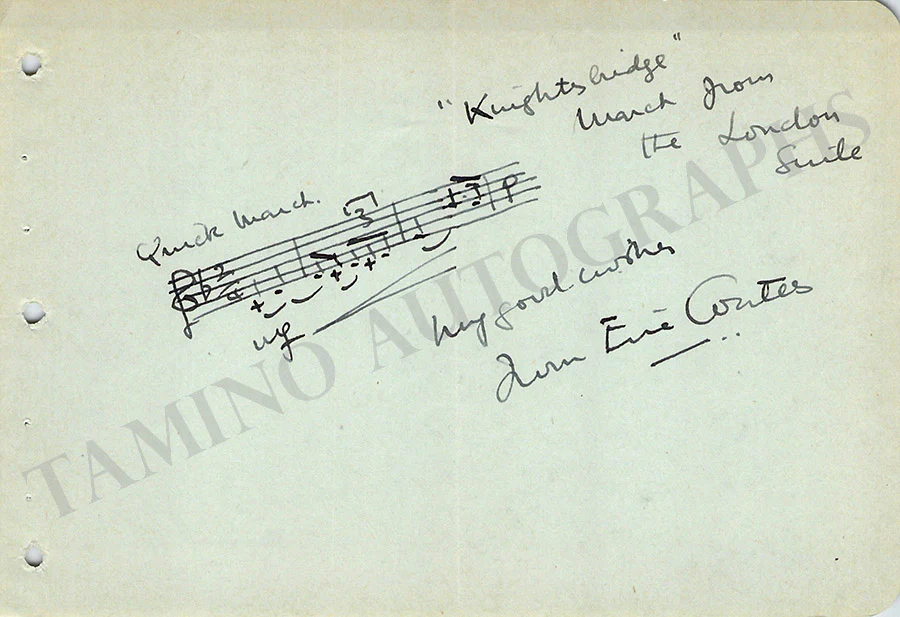 "Knightsbridge"
March from
the London
Suite
Quick March.
3
2
4
mf
My good wishes
from Eric Coates
TAMINO AUTOGRAPHS